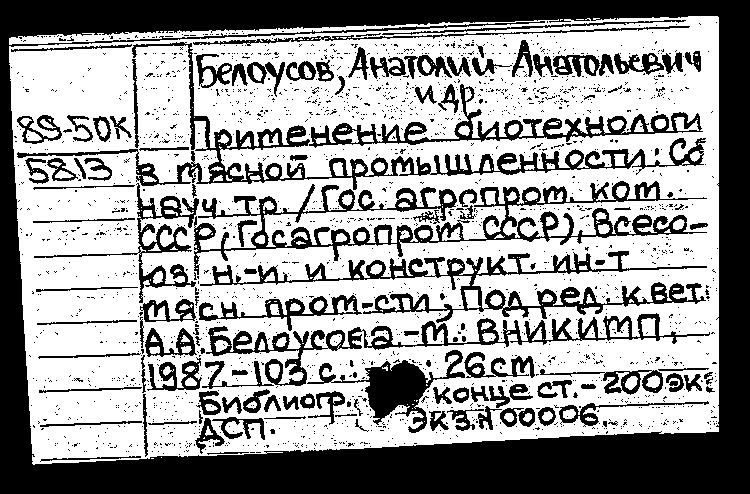 Белоусов, Анатолий Анатольевич
и др.
89-50К
5813
Применение биотехнологи
в мясной промышленности: Сб
науч. тр. / Гос. агропром. ком.
СССР, (Госагропром СССР), Всесо-
юз. н.-и. и конструкт. ин-т
мясн. пром-сти; Под ред. к.вет.
А.А. Белоусова.-М.: ВНИКИМП,
1987.-103 с.: ; 26см.
Библиогр. конце ст.-200эк
ДСП. Экз.N 00006.